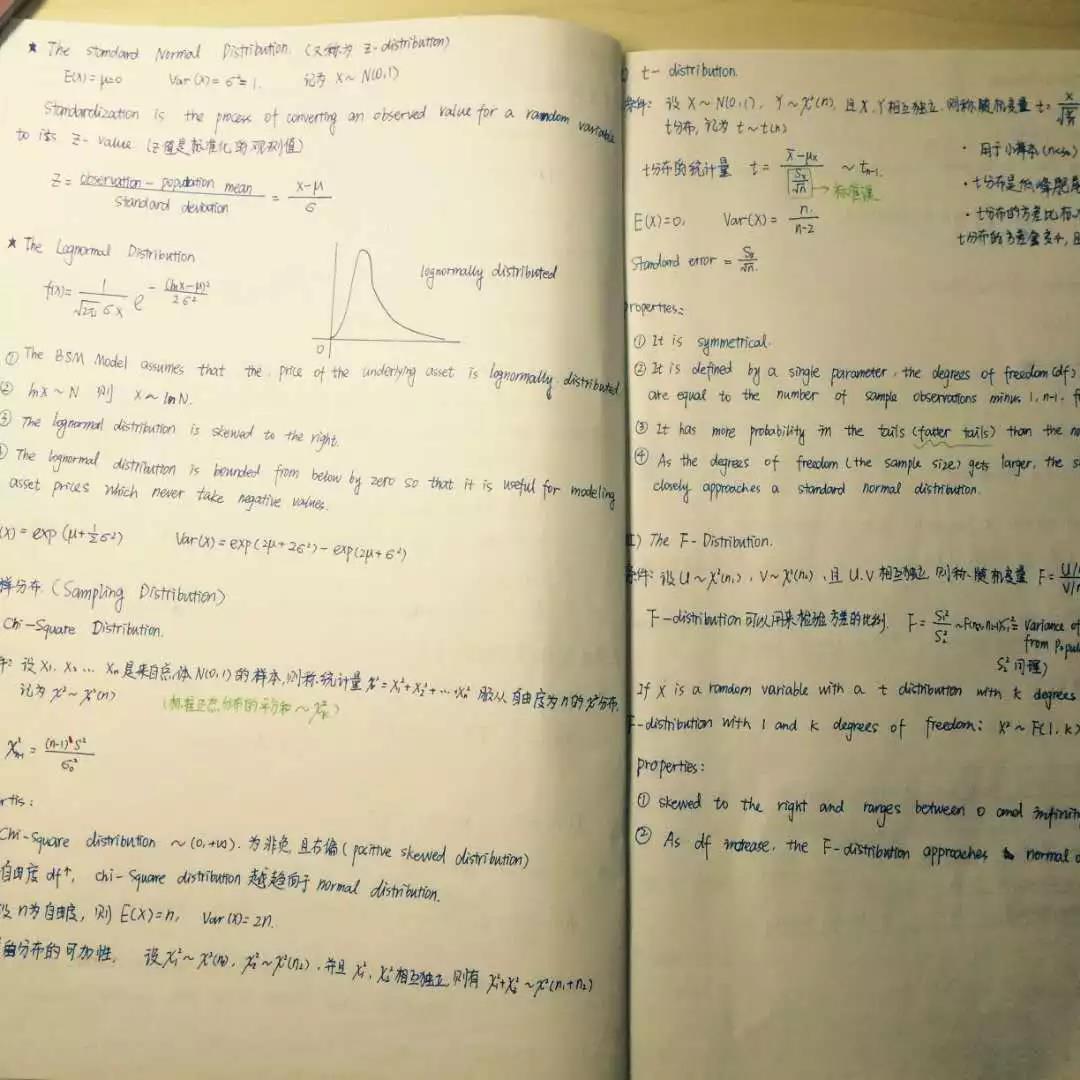 ★ The standard Normal Distribution. (又称为 Z-distribution)
E(X)=μ=0 Var(X)=σ²=1. 记为 X~N(0,1)
Standardization is the process of converting an observed value for a random variable
to its Z-value (Z值是标准化的观测值)
Z = (observation - population mean)/(standard deviation) = (x-μ)/σ
★ The Lognormal Distribution
f(x) = 1/(√2π σx) e^(-(lnx-μ)²/2σ²)
lognormally distributed
0
① The BSM Model assumes that the price of the underlying asset is lognormally distributed
② lnX~N 则 X~lnN.
③ The lognormal distribution is skewed to the right.
The lognormal distribution is bounded from below by zero so that it is useful for modeling
asset prices which never take negative values.
(X) = exp(μ+½σ²) Var(X) = exp(2μ+2σ²) - exp(2μ+σ²)
样分布. (Sampling Distribution)
Chi-Square Distribution.
设 X₁, X₂ … Xₙ 是来自总体 N(0,1) 的样本, 则称统计量 χ²=X₁²+X₂²+…+Xₙ² 服从自由度为n的χ²分布.
记为 χ²~χ²(n) (标准正态分布的平方和 ~
χ²ₙ₋₁ = (n-1)S²/σ₀²
rtis:
Chi-Square distribution ~(0,+∞). 为非负, 且右偏 (positive skewed distribution)
自由度 df↑, chi-Square distribution 越趋向于 normal distribution.
设 n为自由度, 则 E(X)=n, Var(X)=2n.
分布的可加性. 设 χ₁²~χ²(n₁), χ₂²~χ²(n₂), 并且 χ₁², χ₂² 相互独立, 则有 χ₁²+χ₂²~χ²(n₁+n₂)
t-distribution.
条件: 设 X~N(0,1), Y~χ²(n), 且 X, Y相互独立, 则称随机变量 t=
t分布, 记为 t~t(n)
· 用于小样本
t分布的统计量 t = (X̄-μx)/(Sx/√n) ~tₙ₋₁.
→标准误
· t分布是低峰肥尾
E(X)=0, Var(X) = n/(n-2)
· t分布的方差比标
t分布的方差会变小,
Standard error = Sx/√n.
roperties:
① It is symmetrical.
② It is defined by a single parameter, the degrees of freedom (df)
are equal to the number of sample observations minus 1, n-1, f
③ It has more probability in the tails (fatter tails) than the no
④ As the degrees of freedom (the sample size) gets larger, the s
closely approaches a standard normal distribution.
) The F-Distribution.
条件: 设 U~χ²(n₁), V~χ²(n₂), 且 U, V相互独立, 则称随机变量 F=
F-distribution 可以用来检验方差的比例. F = S₁²/S₂² Variance of
from Popul
S₂² 同理)
If X is a random variable with a t distribution with k degrees
F-distribution with 1 and k degrees of freedom: X²~F(1,k)
properties:
① skewed to the right and ranges between 0 and infinit
② As df increase, the F-distribution approaches normal d